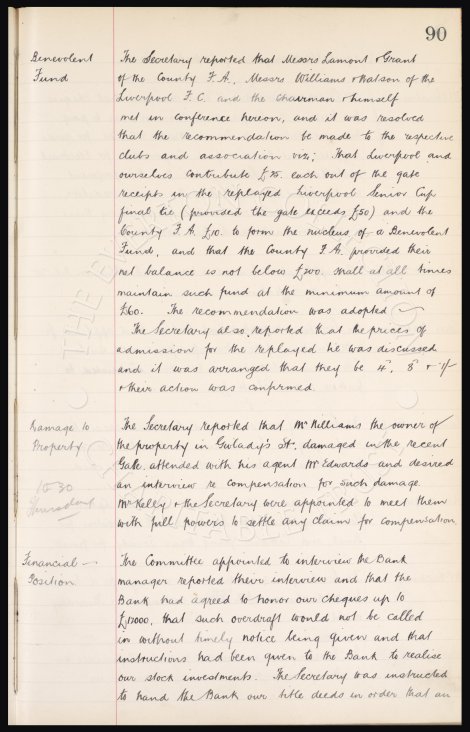 90
Benevolent
Fund
The Secretary reported that Messrs Lamont & Grant
of the County F.A. Messrs Williams & Watson of the
Liverpool F.C. and the Chairman & himself
met in conference hereon, and it was resolved
that the recommendation be made to the respective
clubs and association viz; That Liverpool and
ourselves contribute £25. each out of the gate
receipts in the replayed Liverpool Senior Cup
final tie (provided the gate exceeds £50) and the
County F.A. £10. to form the nucleus of a Benevolent
Fund, and that the County F.A. provided their
net balance is not below £200. shall at all times
maintain such fund at the minimum amount of
£60. The recommendation was adopted
The Secretary also reported that the prices of
admission for the replayed tie was discussed
and it was arranged that they be 4d, 8d & 1/-
& their action was confirmed.
Damage to
Property
10 30
Thursday
The Secretary reported that Mr Williams the owner of
the property in Gwladys St. damaged in the recent
Gale, attended with his agent Mr Edwards and desired
an interview re compensation for such damage.
Mr Kelly & the Secretary were appointed to meet them
with full powers to settle any claim for compensation
Financial
Position
The Committee appointed to interview the Bank
manager reported their interview and that the
Bank had agreed to honor our cheques up to
that such overdraft would not be called
in without timely notice being given and that
instructions had been given to the Bank to realise
our stock investments. The Secretary was instructed
to hand the Bank our title deeds in order that an